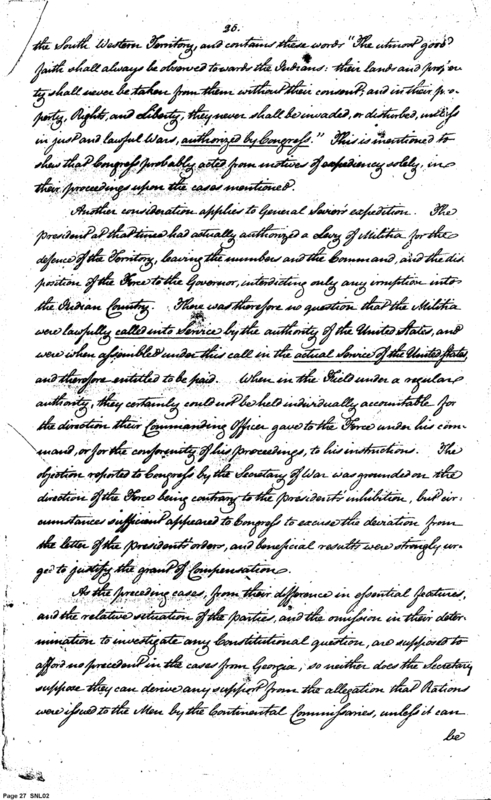 26.
the South Western Territory, and contains these words "The utmost good
faith shall always be observed towards the Indians: their lands and proper-
ty shall never be taken from them without their consent; and in their pro-
perty, Rights, and Liberty, they never shall be invaded, or disturbed, unless
in just and lawful Wars, authorized by Congress." This is mentioned to
shew that Congress probably acted from motives of expediency solely, in
their proceedings upon the cases mentioned.
Another consideration applies to General Sevier's expedition. The
president at that time had actually authorized a Levy of Militia for the
defence of the Territory, leaving the numbers and the Command, and the dis
position of the Force to the Governor, interdicting only any irruption into
the Indian Country. There was therefore no question that the Militia
were lawfully called into Service by the authority of the United States, and
were when assembled under this call in the actual Service of the United States,
and therefore entitled to be paid. When in the Field under a regular
authority, they certainly could not be held individually accountable for
the direction their Commanding Officer gave to the Force under his com-
mand, or for the conformity of his proceedings, to his instructions. The
objection reported to Congress by the Secretary of War was grounded on the
direction of the Force being contrary to the president's inhibition, but cir-
cumstances sufficient appeared to Congress to excuse the deviation from
the letter of the President's orders, and beneficial results were strongly ur-
ged to justify the grant of Compensation.
As the preceding cases, from their difference in essential features,
and the relative situation of the parties, and the omission in their deter-
mination to investigate any Constitutional question, are supposed to
afford no precedent in the cases from Georgia, so neither does the Secretary
suppose they can derive any support from the allegation that Rations
were issued to the Men by the Continental Commissaries, unless it can
be
Page 27 SNL02